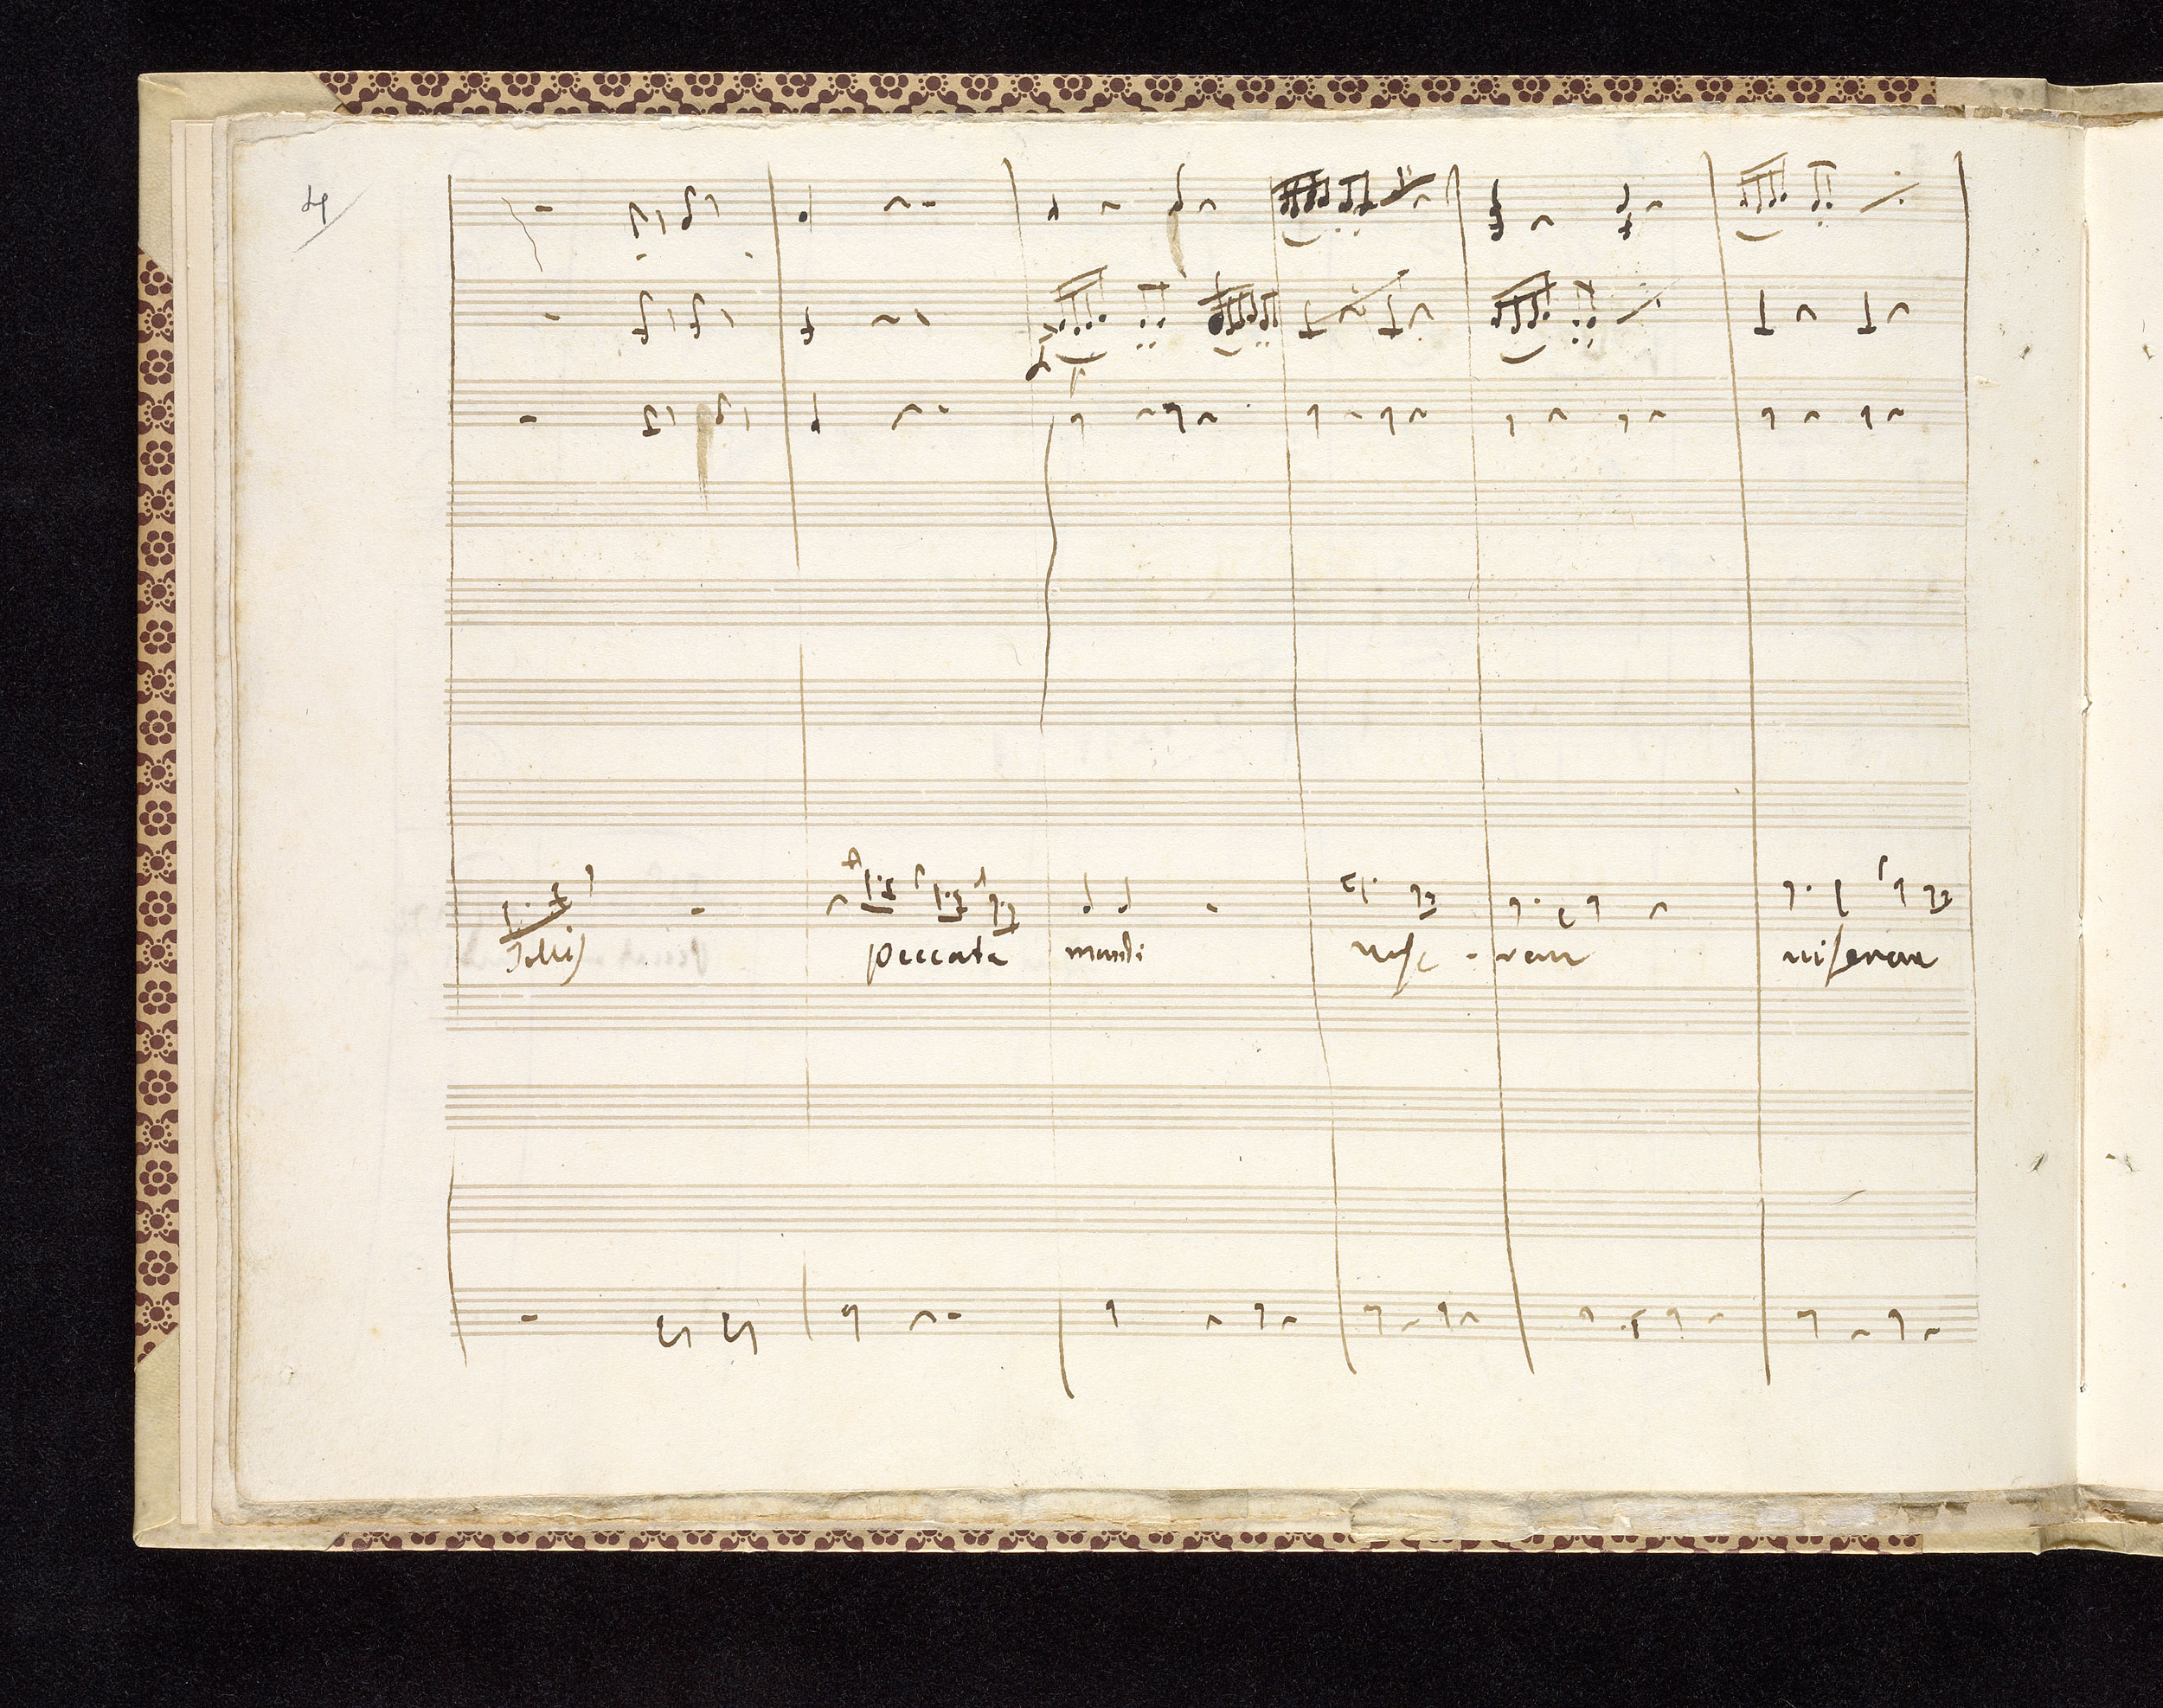 4
Tollis peccata mundi mise - rere miserere